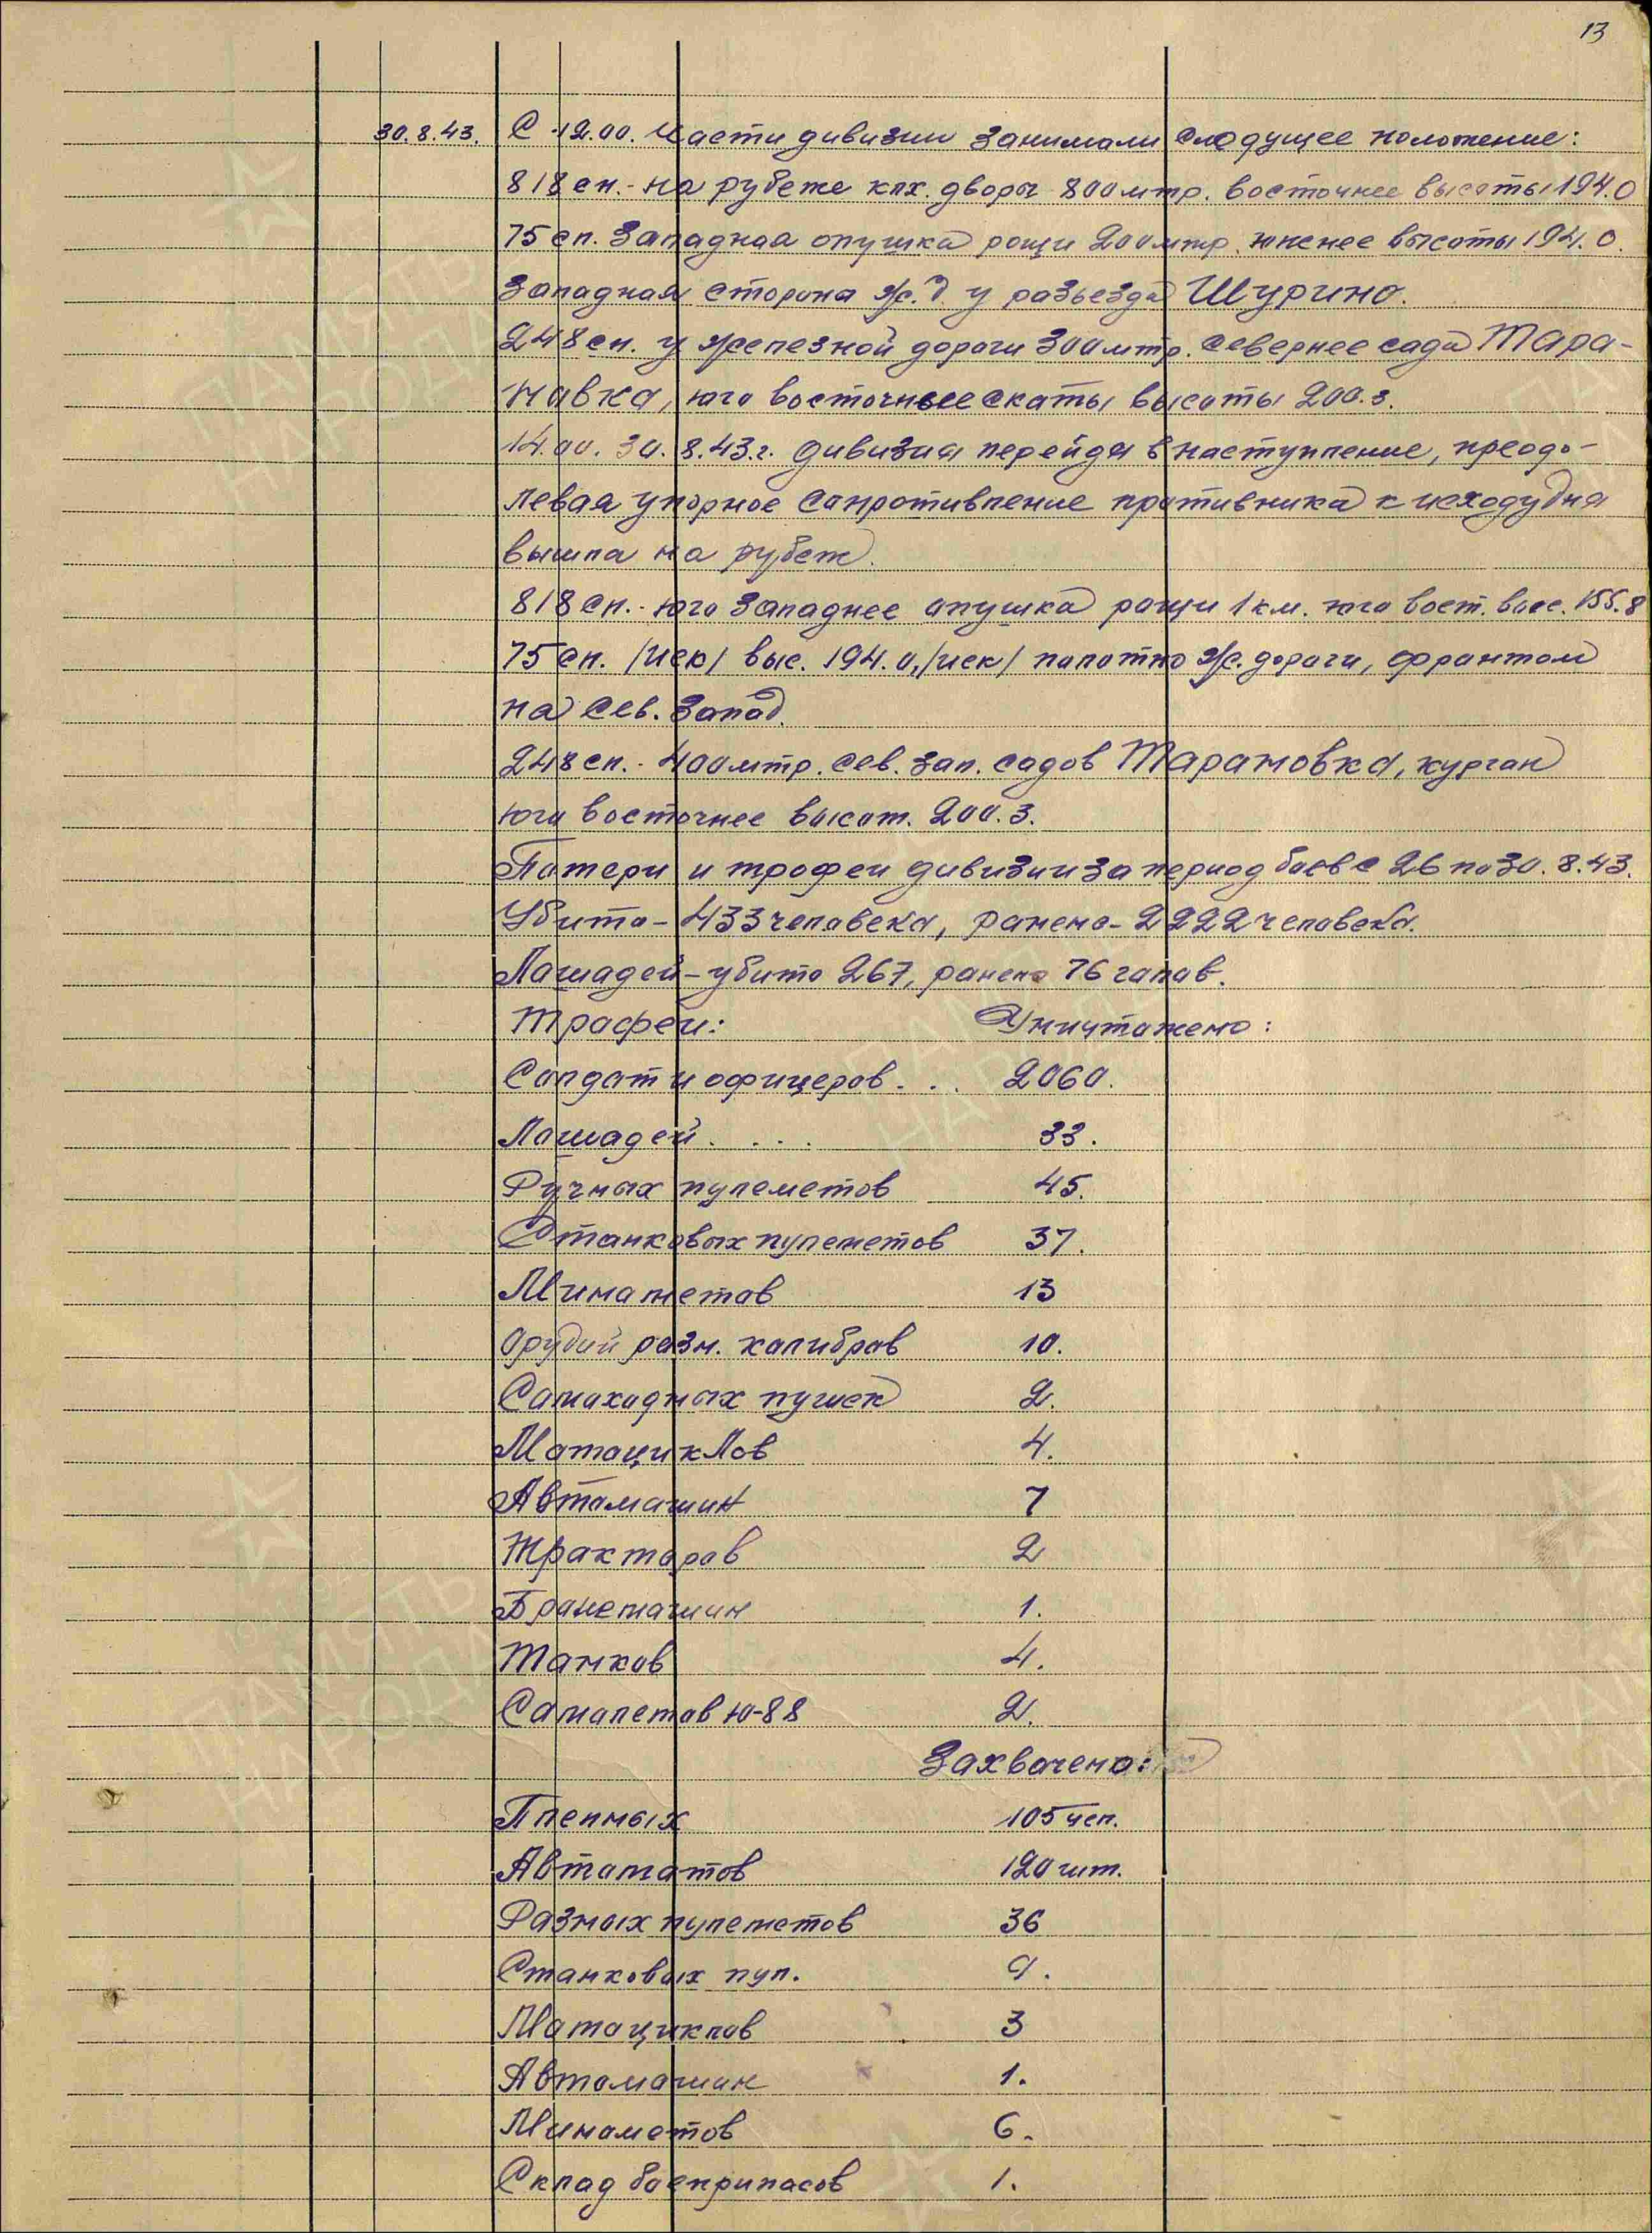 13
30.8.43. С 12.00. части дивизии занимали следущее положение:
818 сп. - на рубеже клх. дворы 800 мтр. восточнее высоты 194.0
75 сп. Западная опушка рощи 200 мтр. южнее высоты 194.0.
Западная сторона ж.д. у разъезда Шурино.
248 сп. у железной дороги 300 мтр. севернее сада Тара-
новка, юго восточнее скаты высоты 200.3.
14.00. 30.8.43.г. дивизия перейдя в наступление, преодо-
левая упорное сопротивление противника к исходу дня
вышла на рубеж.
818 сп. - юго западнее опушка рощи 1 км. юго вост. выс. 155.8
75 сп. /иск/ выс. 194.0, /иск/ полотно ж. дороги, фронтом
на сев. запад.
248 сп. - 400 мтр. сев. зап. садов Тарановка, курган
юго восточнее высот. 200.3.
Потери и трофеи дивизии за период боев с 26 по 30.8.43.
Убито - 433 человека, ранено - 2222 человека.
Лошадей - убито 267, ранено 76 голов.
Трофеи: Уничтожено:
Солдат и офицеров . . . 2060.
Лошадей . . . . 33.
Ручных пулеметов 45.
Станковых пулеметов 37.
Минометов 13
Орудий разн. калибров 10.
Самоходных пушек 2.
Мотоциклов 4.
Автомашин 7
Тракторов 2
Бронемашин 1.
Танков 4.
Самолетов Ю-88 2.
Захвачено:
Пленных 105 чел.
Автоматов 120 шт.
Разных пулеметов 36
Станковых пул. 9.
Мотоциклов 3
Автомашин 1.
Минометов 6.
Склад боеприпасов 1.
ПАМЯТЬ НАРОДА